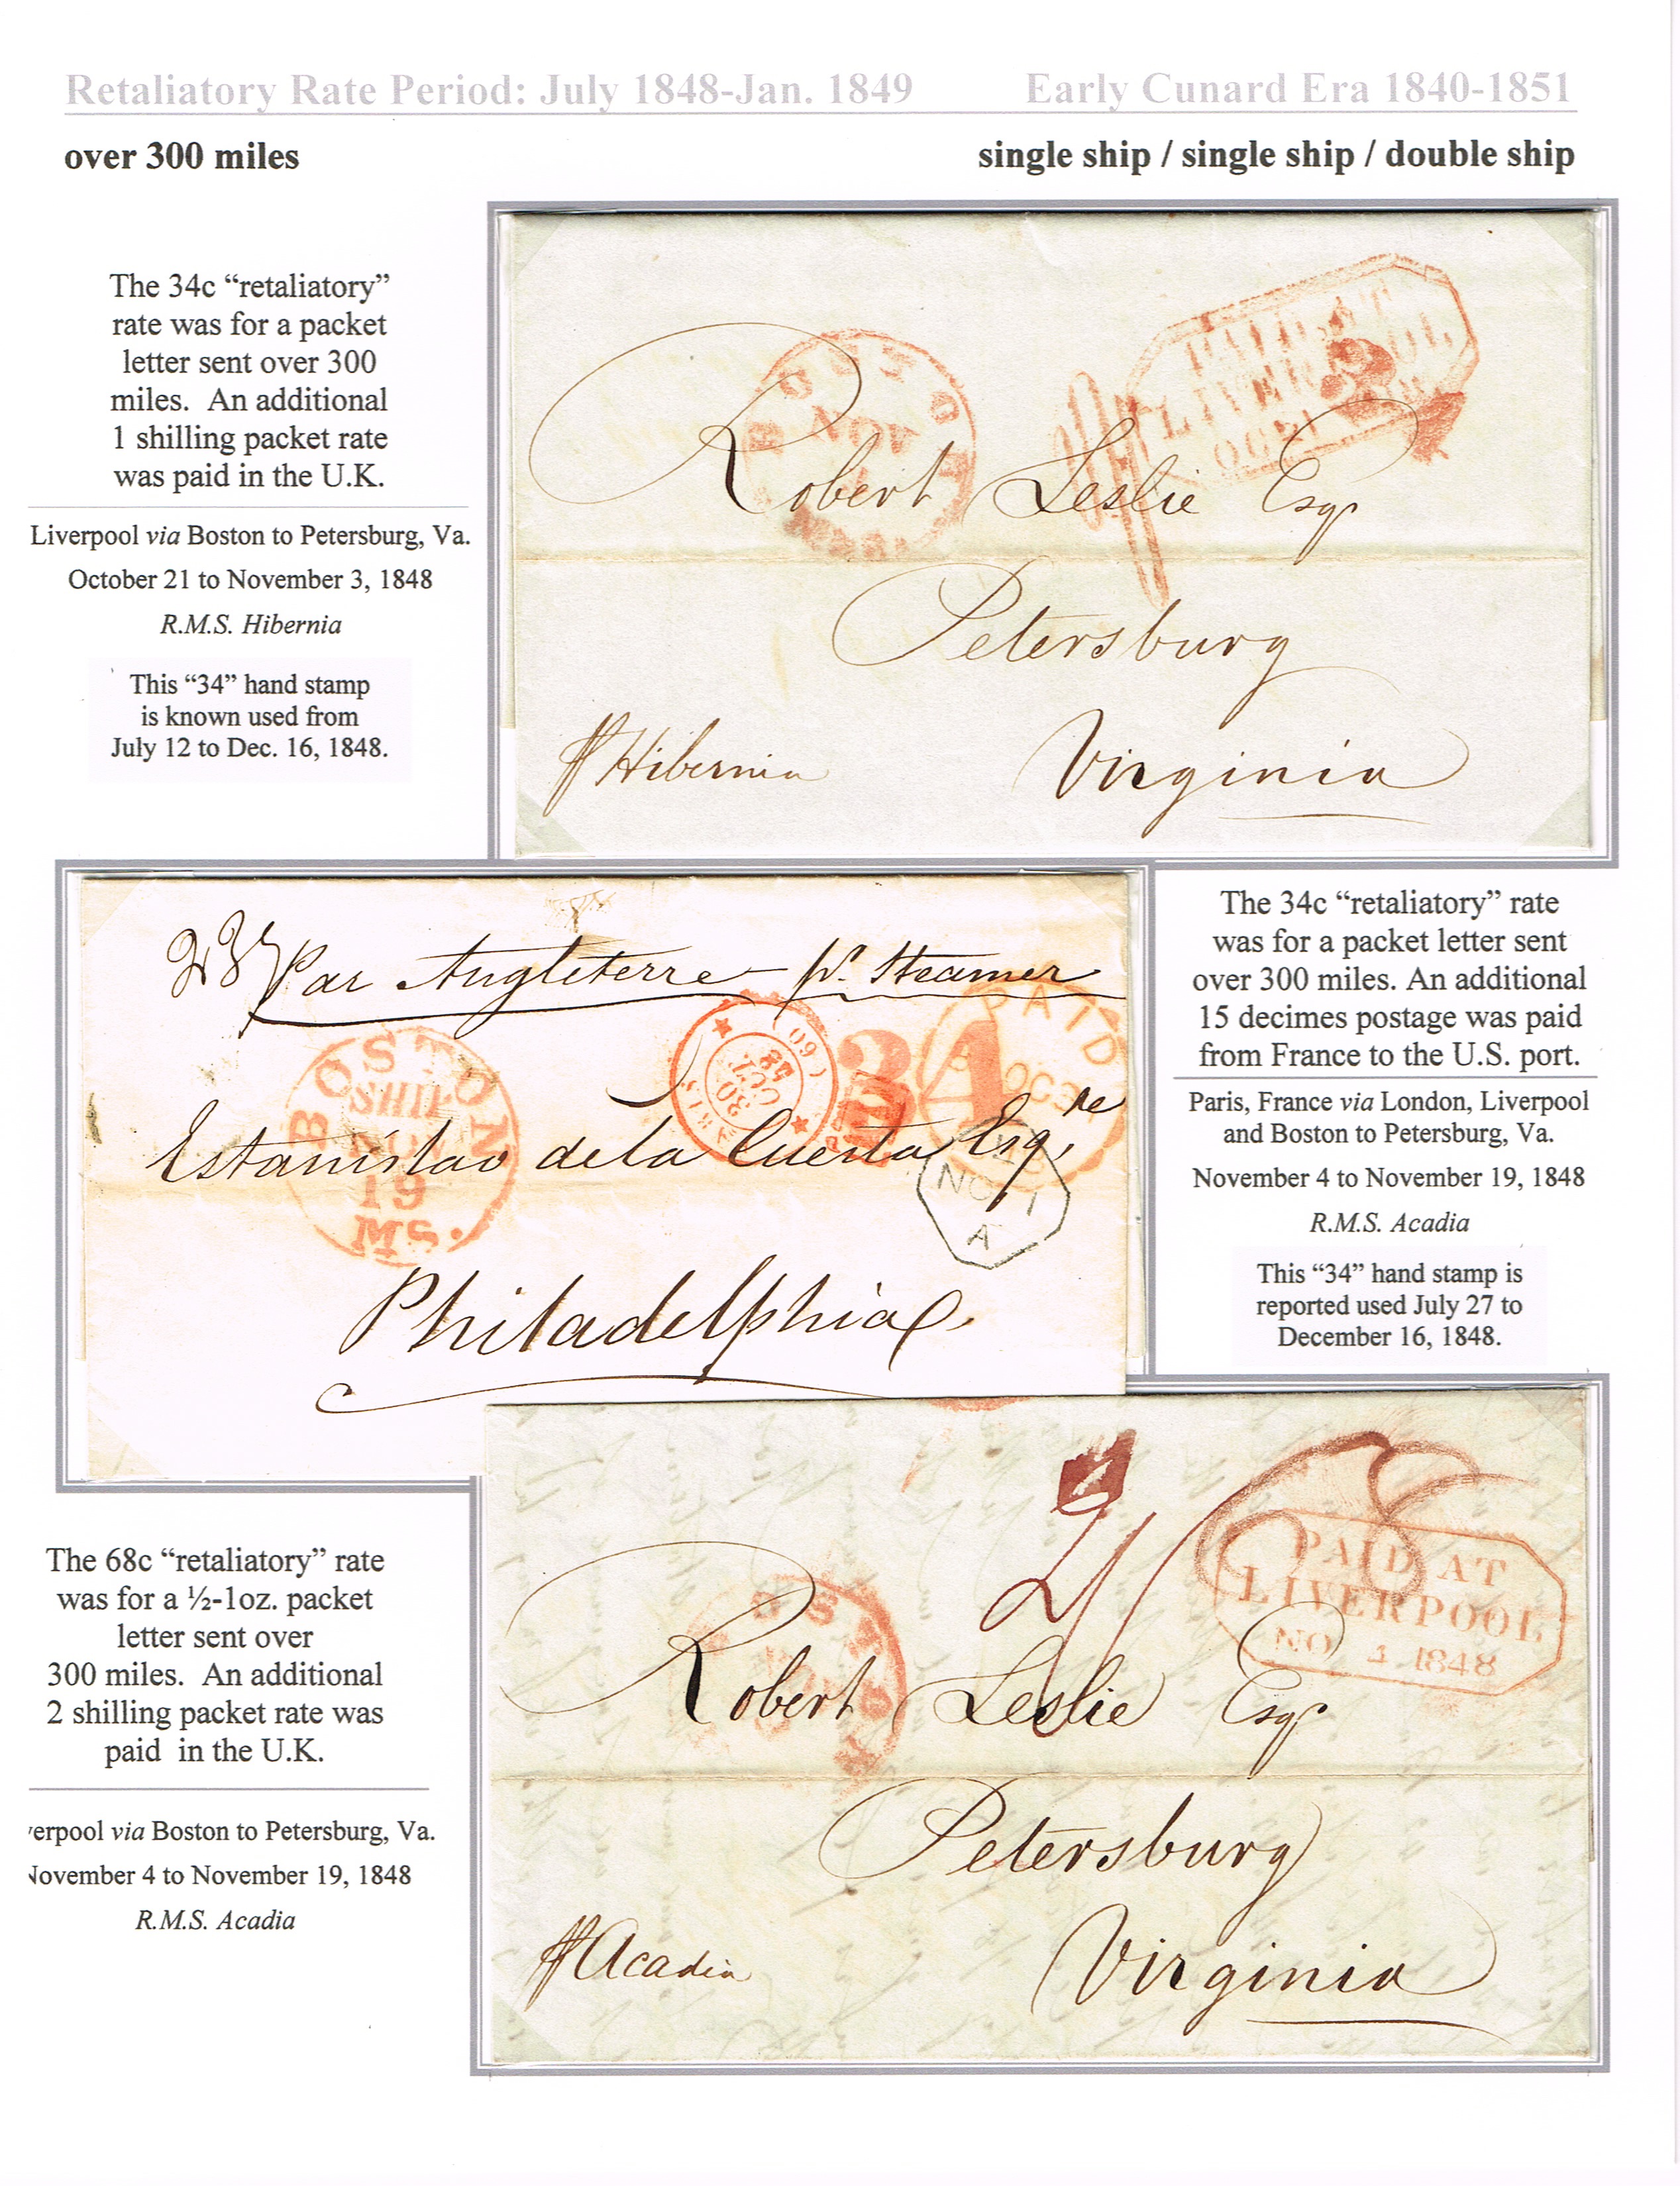 Retaliatory Rate Period: July 1848-Jan. 1849 Early Cunard Era 1840-1851
over 300 miles single ship / single ship / double ship
The 34c “retaliatory”
rate was for a packet
letter sent over 300
miles. An additional
1 shilling packet rate
was paid in the U.K.
Liverpool via Boston to Petersburg, Va.
October 21 to November 3, 1848
R.M.S. Hibernia
This “34” hand stamp
is known used from
July 12 to Dec. 16, 1848.
BOSTON
NOV
PAID AT
LIVERPOOL
Robert Leslie Esqr
Petersburg
Virginia
Hibernia
Par Angleterre pr. Steamer
BOSTON
SHIP
NOV
19
MS.
PARIS
(60)
30
OCT.
34
PAID
Estanislao de la Cuesta Esqre
NO 1
A
Philadelphia
The 34c “retaliatory” rate
was for a packet letter sent
over 300 miles. An additional
15 decimes postage was paid
from France to the U.S. port.
Paris, France via London, Liverpool
and Boston to Petersburg, Va.
November 4 to November 19, 1848
R.M.S. Acadia
This “34” hand stamp is
reported used July 27 to
December 16, 1848.
The 68c “retaliatory” rate
was for a ½-1oz. packet
letter sent over
300 miles. An additional
2 shilling packet rate was
paid in the U.K.
erpool via Boston to Petersburg, Va.
November 4 to November 19, 1848
R.M.S. Acadia
68
PAID AT
LIVERPOOL
NO 4 1848
Robert Leslie Esqr
Petersburg
Virginia
Acadia